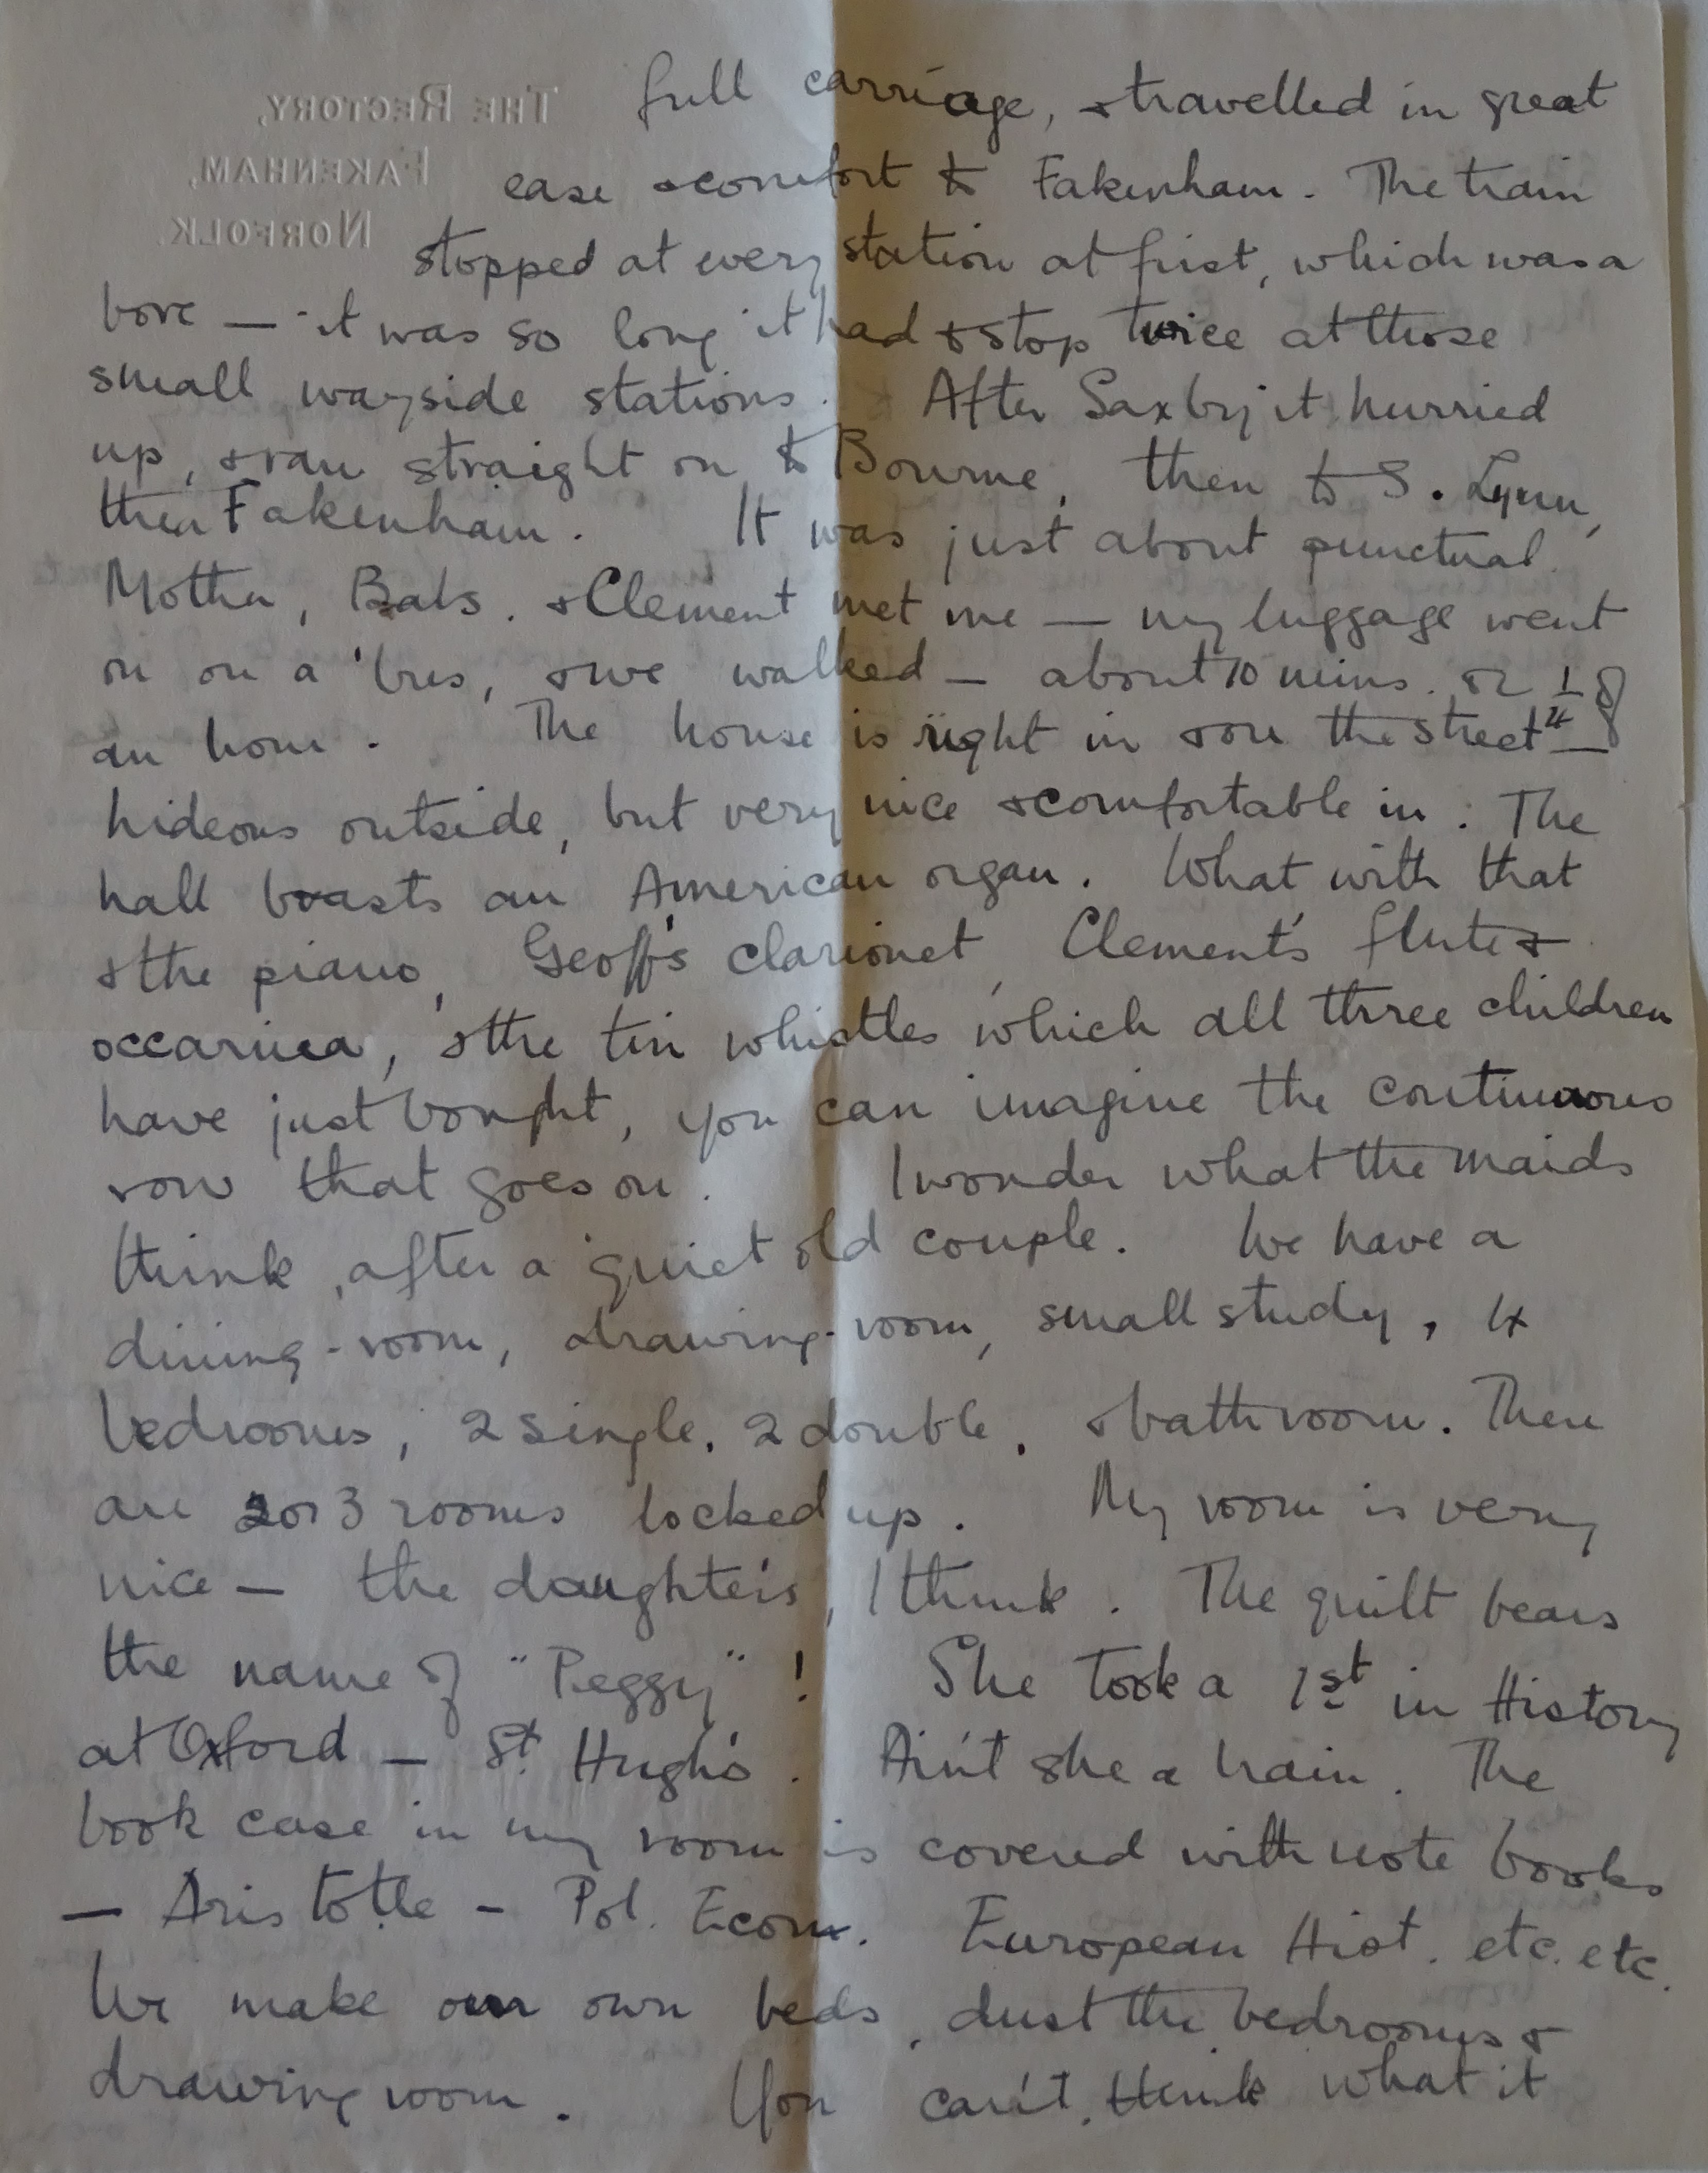 THE RECTORY,
FAKENHAM,
NORFOLK.
full carriage, & travelled in great
ease & comfort to Fakenham. The train
stopped at every station at first, which was a
bore — it was so long it had to stop twice at those
small wayside stations. After Saxby it hurried
up, & ran straight on to Bourne, then to S. Lynn,
then Fakenham. It was just about punctual.
Mother, Babs. & Clement met me — my luggage went
on on a 'bus, & we walked — about 10 mins. or 1/4 of
an hour. The house is right in & on the street —
hideous outside, but very nice & comfortable in. The
hall boasts an American organ. What with that
& the piano, Geoff's clarionet, Clement's flute &
occarina, & the tin whistles which all three children
have just bought, you can imagine the continuous
row that goes on. I wonder what the maids
think, after a quiet old couple. We have a
dining-room, drawing-room, small study, 4
bedrooms, 2 single, 2 double, & bathroom. There
are 2 or 3 rooms locked up. My room is very
nice — the daughter's, I think. The quilt bears
the name of "Peggy"! She took a 1st in History
at Oxford — St. Hugh's. Ain't she a brain. The
book case in my room is covered with note books
— Aristotle — Pol. Econ. European Hist. etc. etc.
We make our own beds, dust the bedrooms &
drawing room. You can't think what it